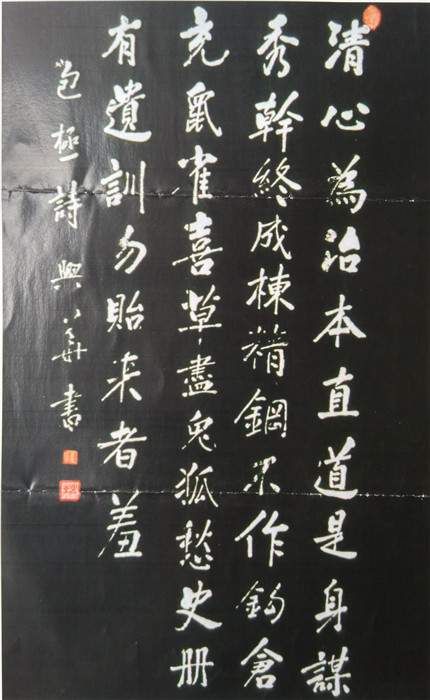 清心為治本直道是身謀
秀幹終成棟精鋼不作鈎倉
充鼠雀喜草盡兔狐愁史册
有遺訓勿貽来者羞
包極詩興書